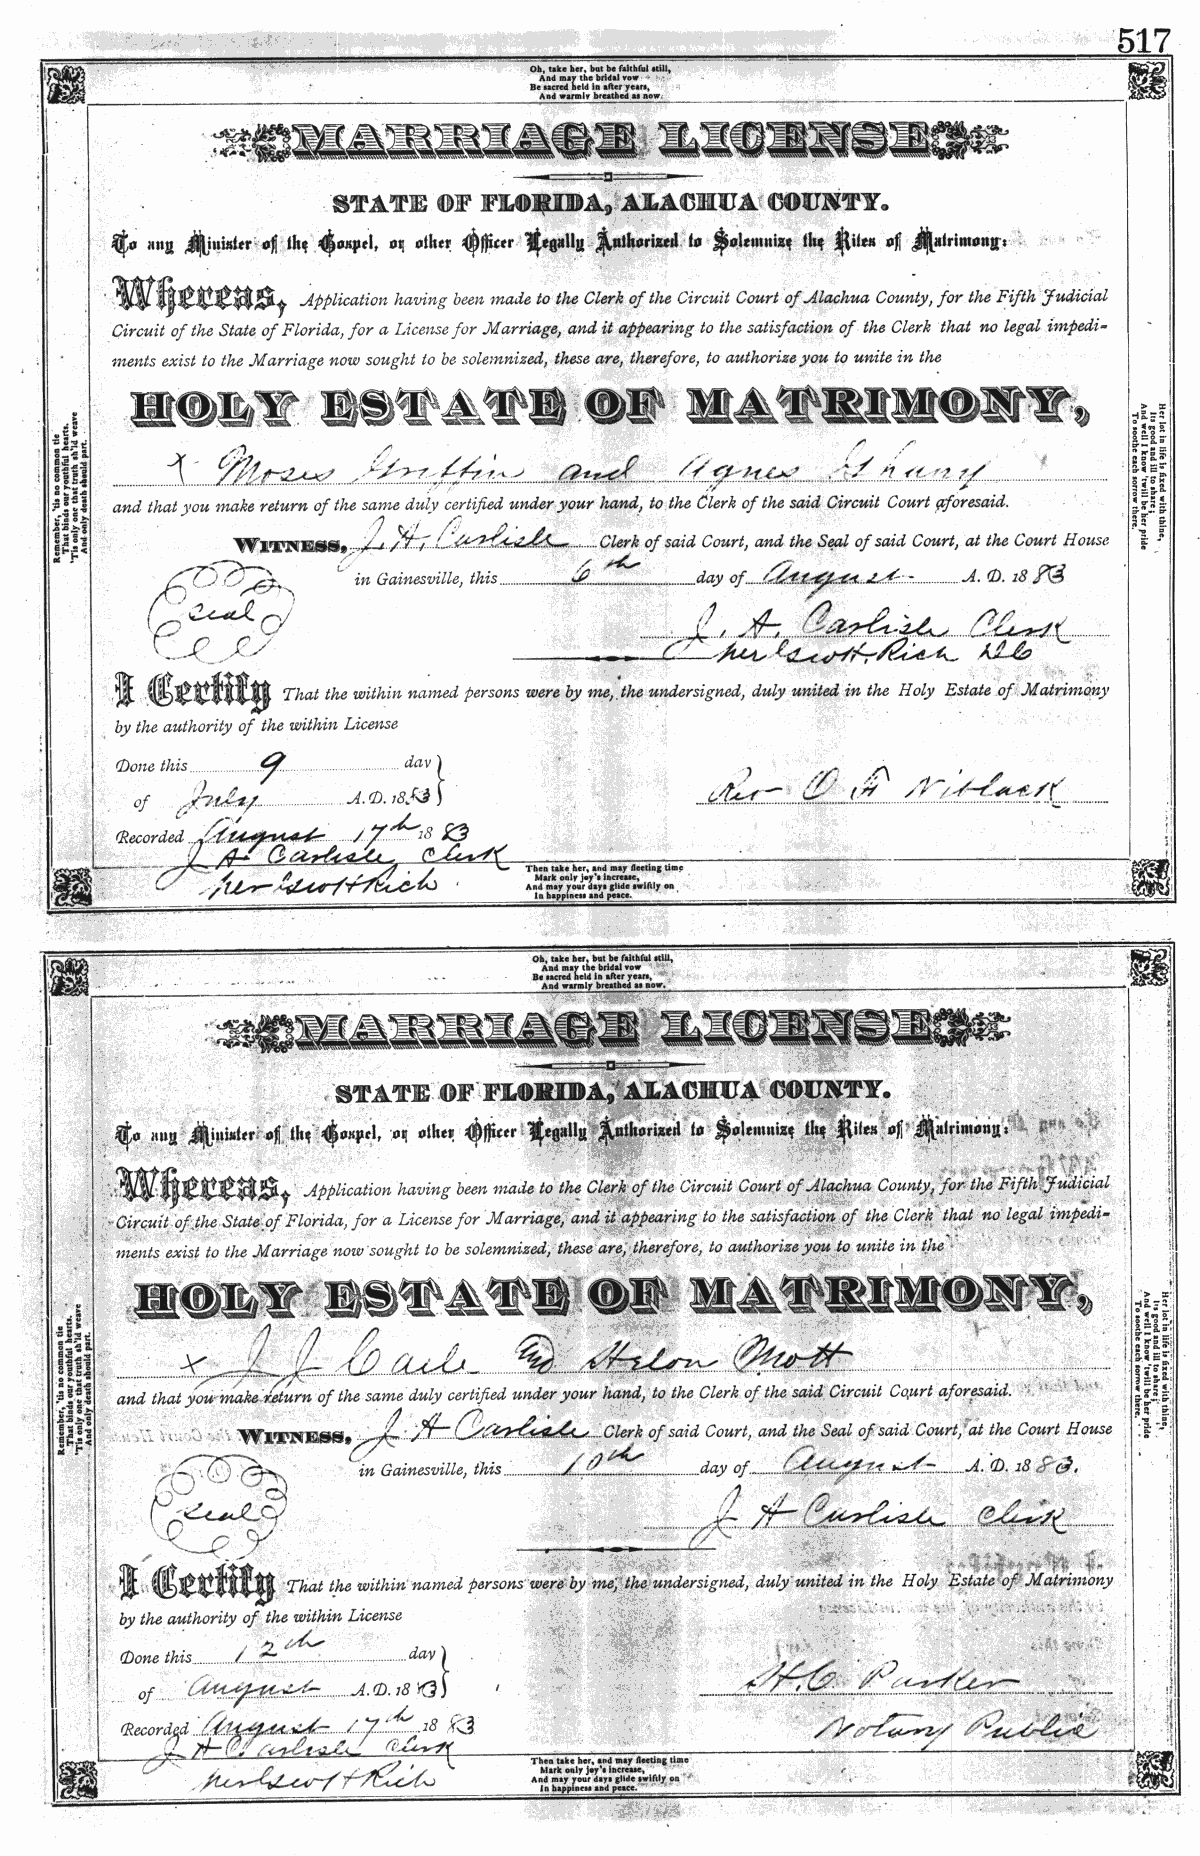 517
Oh, take her, but be faithful still,
And may the bridal vow
Be sacred held in after years,
And warmly breathed as now.
MARRIAGE LICENSE
STATE OF FLORIDA, ALACHUA COUNTY.
To any Minister of the Gospel, or other Officer Legally Authorized to Solemnize the Rites of Matrimony:
Whereas, Application having been made to the Clerk of the Circuit Court of Alachua County, for the Fifth Judicial
Circuit of the State of Florida, for a License for Marriage, and it appearing to the satisfaction of the Clerk that no legal impedi-
ments exist to the Marriage now sought to be solemnized, these are, therefore, to authorize you to unite in the
HOLY ESTATE OF MATRIMONY,
x Moses Griffin and Agnes
and that you make return of the same duly certified under your hand, to the Clerk of the said Circuit Court aforesaid.
WITNESS, J. A. Carlisle Clerk of said Court, and the Seal of said Court, at the Court House
in Gainesville, this 6th day of August A. D. 1883
seal
J. A. Carlisle Clerk
Rich DC
I Certify That the within named persons were by me, the undersigned, duly united in the Holy Estate of Matrimony
by the authority of the within License
Done this 9 day
of July A. D. 1883
Rev O F Niblack
Recorded August 17th 1883
J A Carlisle Clerk
Rich
Remember, 'tis no common tie
That binds our youthful hearts,
'Tis only one that truth sh'ld weave
And only death should part.
Her lot in life is fixed with thine,
Its good and ill to share;
And well I know 'twill be her pride
To soothe each sorrow there.
Then take her, and may fleeting time
Mark only joy's increase,
And may your days glide swiftly on
In happiness and peace.
Oh, take her, but be faithful still,
And may the bridal vow
Be sacred held in after years,
And warmly breathed as now.
MARRIAGE LICENSE
STATE OF FLORIDA, ALACHUA COUNTY.
To any Minister of the Gospel, or other Officer Legally Authorized to Solemnize the Rites of Matrimony:
Whereas, Application having been made to the Clerk of the Circuit Court of Alachua County, for the Fifth Judicial
Circuit of the State of Florida, for a License for Marriage, and it appearing to the satisfaction of the Clerk that no legal impedi-
ments exist to the Marriage now sought to be solemnized, these are, therefore, to authorize you to unite in the
HOLY ESTATE OF MATRIMONY,
x J J and Helon Mott
and that you make return of the same duly certified under your hand, to the Clerk of the said Circuit Court aforesaid.
WITNESS, J A Carlisle Clerk of said Court, and the Seal of said Court, at the Court House
in Gainesville, this 10th day of August A. D. 1883.
seal
J A Carlisle Clerk
I Certify That the within named persons were by me, the undersigned, duly united in the Holy Estate of Matrimony
by the authority of the within License
Done this 12th day
of August A. D. 1883
H. C Parker
Recorded August 17th 1883
Notary Public
J A Carlisle Clerk
Rich
Remember, 'tis no common tie
That binds our youthful hearts,
'Tis only one that truth sh'ld weave
And only death should part.
Her lot in life is fixed with thine,
Its good and ill to share;
And well I know 'twill be her pride
To soothe each sorrow there.
Then take her, and may fleeting time
Mark only joy's increase,
And may your days glide swiftly on
In happiness and peace.